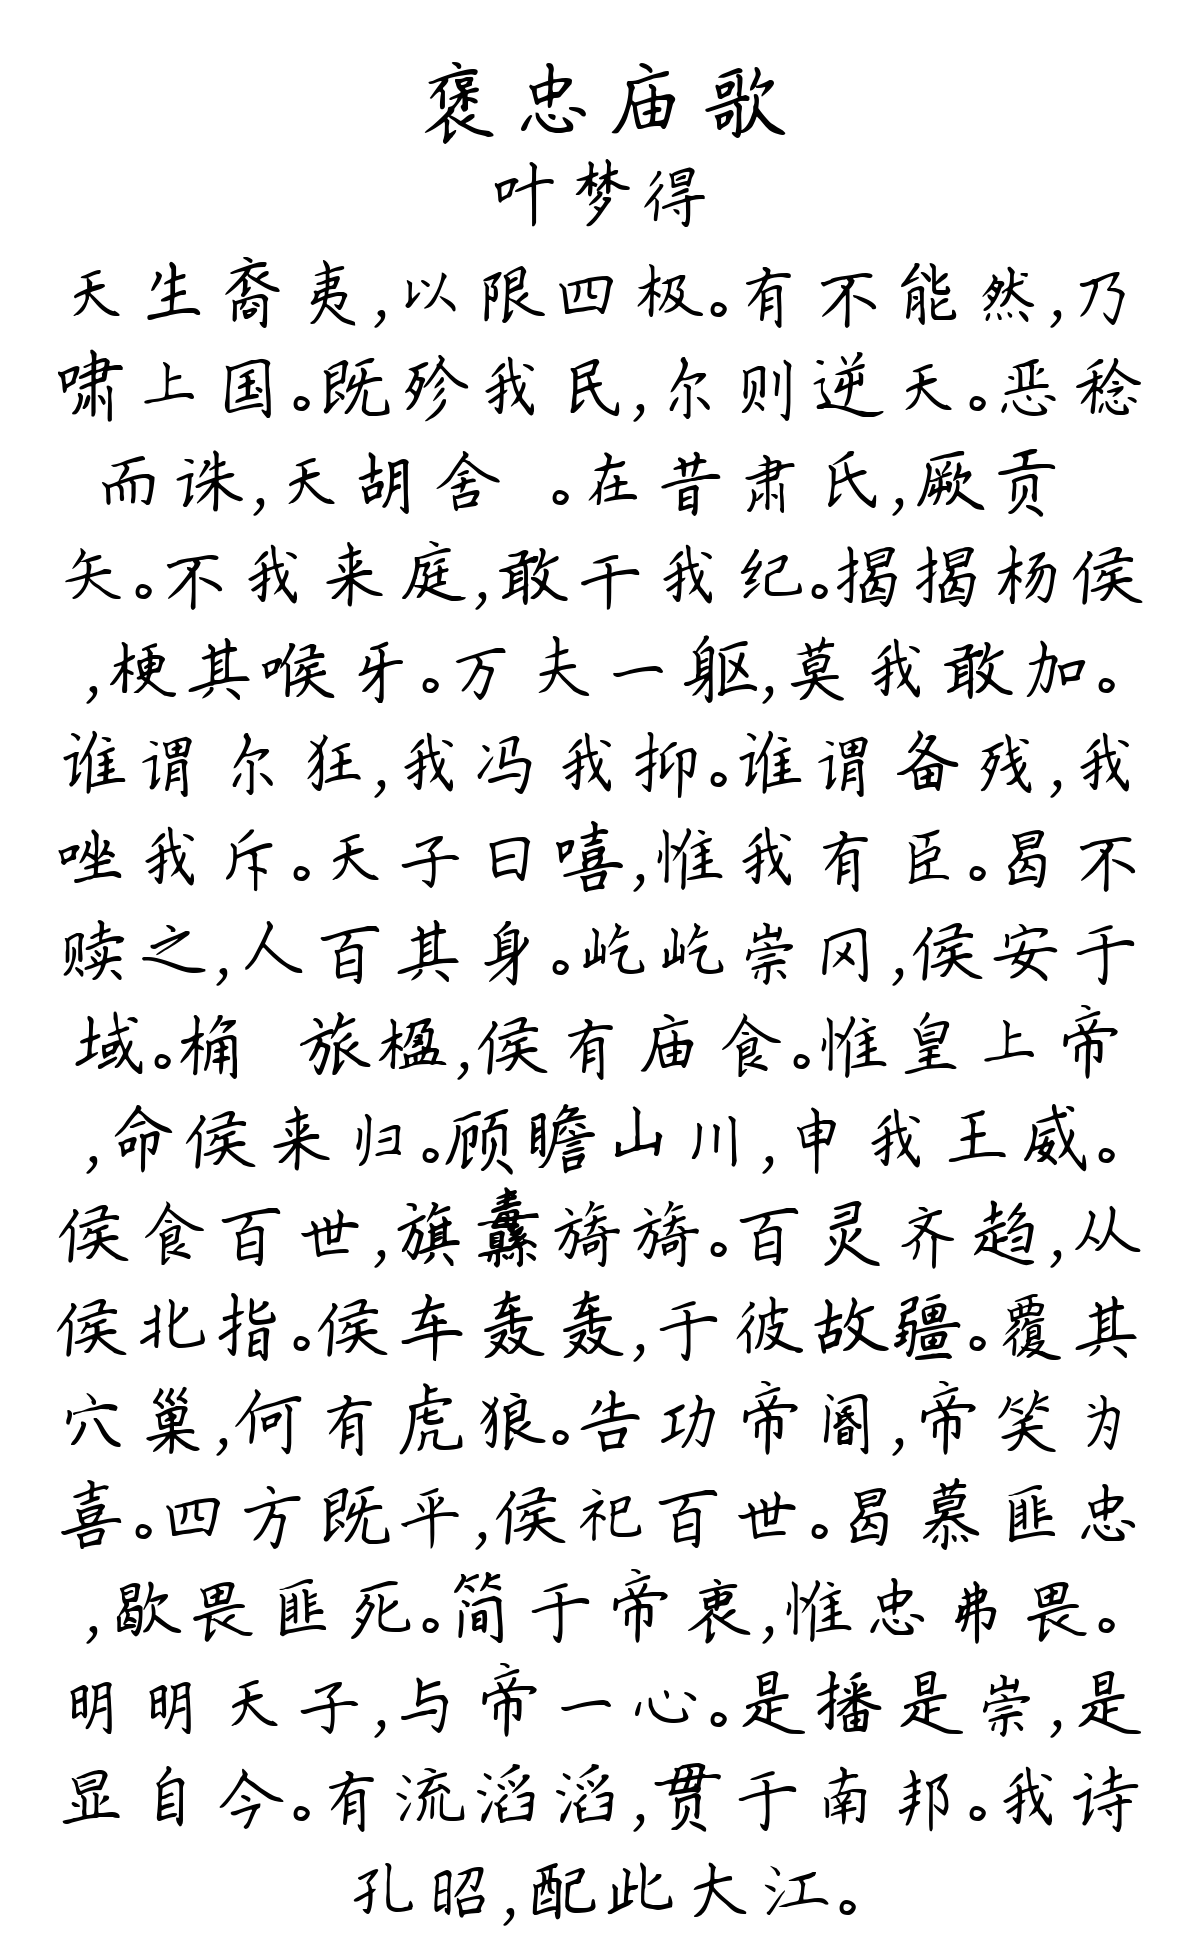 褒忠庙歌
叶梦得
天生裔夷,以限四极。有不能然,乃
啸上国。既殄我民,尔则逆天。恶稔
而诛,天胡舍 。在昔肃氏,厥贡
矢。不我来庭,敢干我纪。揭揭杨侯
,梗其喉牙。万夫一躯,莫我敢加。
谁谓尔狂,我冯我抑。谁谓备残,我
唑我斥。天子曰嘻,惟我有臣。曷不
赎之,人百其身。屹屹崇冈,侯安于
域。桷 旅楹,侯有庙食。惟皇上帝
,命侯来归。顾瞻山川,申我王威。
侯食百世,旗纛旖旖。百灵齐趋,从
侯北指。侯车轰轰,于彼故疆。覆其
穴巢,何有虎狼。告功帝阍,帝笑为
喜。四方既平,侯祀百世。曷慕匪忠
,歇畏匪死。简于帝衷,惟忠弗畏。
明明天子,与帝一心。是播是崇,是
显自今。有流滔滔,贯于南邦。我诗
孔昭,配此大江。